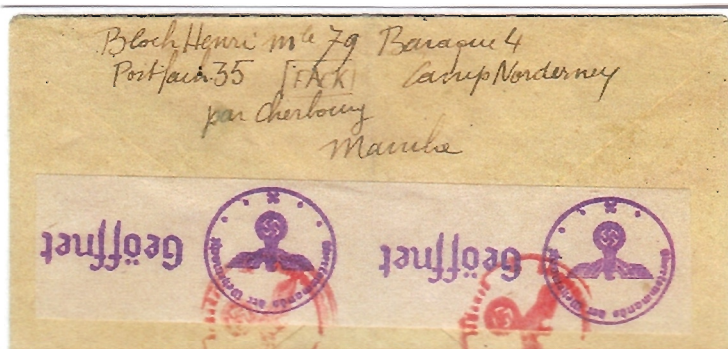 Bloch Henri mle 79 Baraque 4
Postfach 35 [FACK] Camp Norderney
par Cherbourg
Manche
Geöffnet
Oberkommando der Wehrmacht
Geöffnet
Oberkommando der Wehrmacht